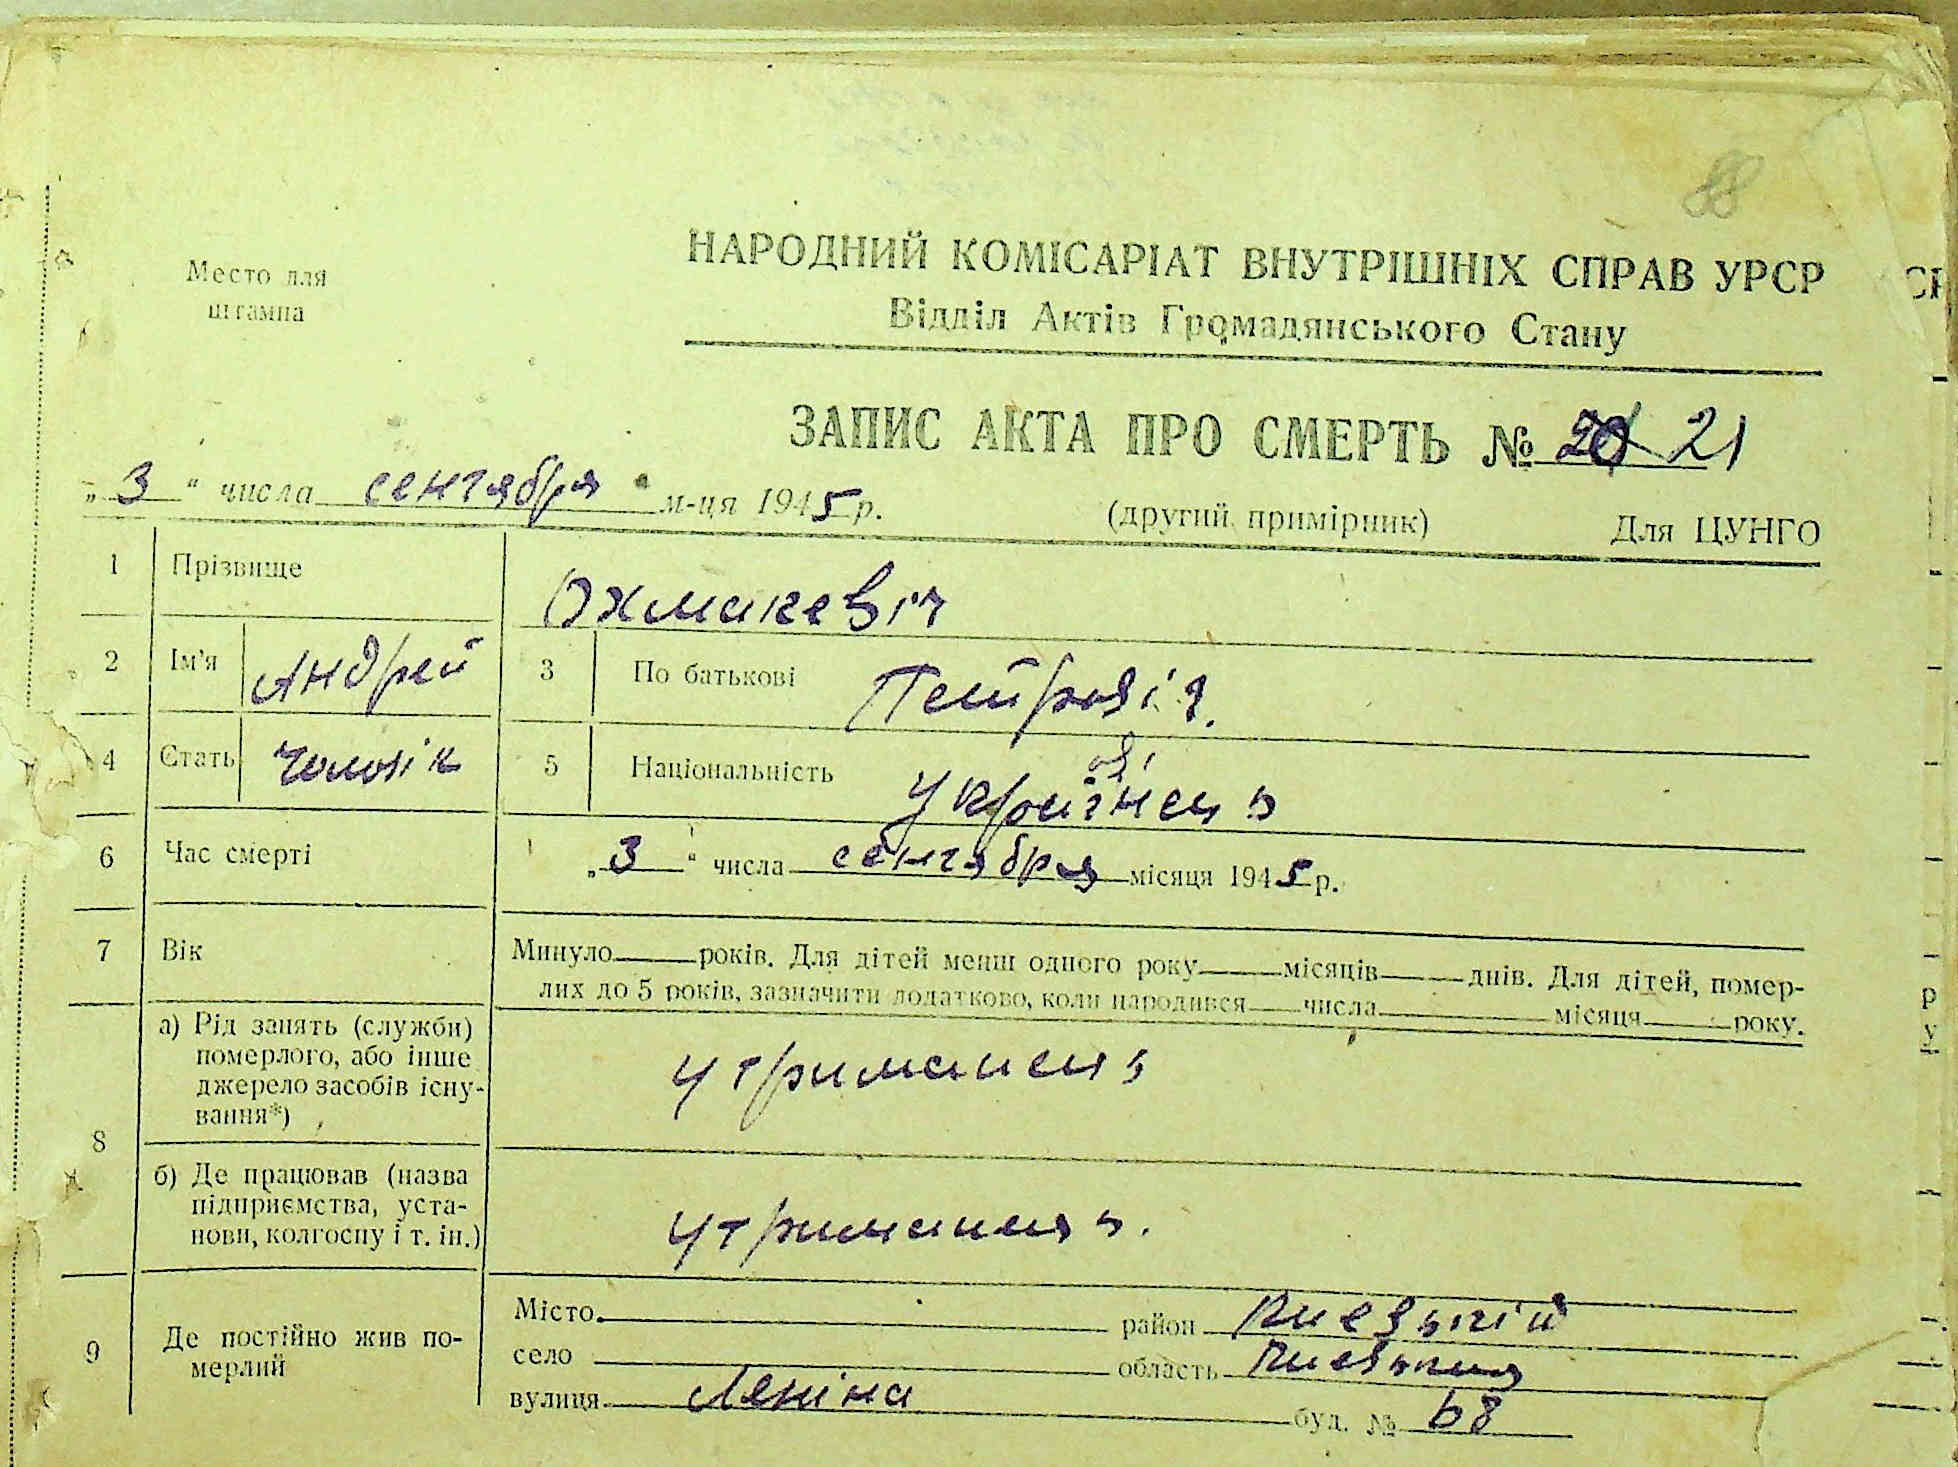 88
Место для
штампа
НАРОДНИЙ КОМІСАРІАТ ВНУТРІШНІХ СПРАВ УРСР
Відділ Актів Громадянського Стану
ЗАПИС АКТА ПРО СМЕРТЬ № 20 21
„ 3 “ числа сентября м-ця 1945 р.
(другий примірник) Для ЦУНГО
1 Прізвище Охмакевіч
2 Ім’я Андрей 3 По батькові Петровіч.
4 Стать Чоловік 5 Національність Українець
6 Час смерті „ 3 “ числа сентября місяця 1945 р.
7 Вік Минуло років. Для дітей менш одного року місяців днів. Для дітей, помер-
лих до 5 років, зазначити додатково, коли народився числа місяця року.
8 а) Рід занять (служби)
померлого, або інше
джерело засобів існу-
вання*)
утриманець
б) Де працював (назва
підприємства, уста-
нови, колгоспу і т. ін.)
9 Де постійно жив по-
мерлий
Місто район
село область
вулиця Леніна буд. № 68